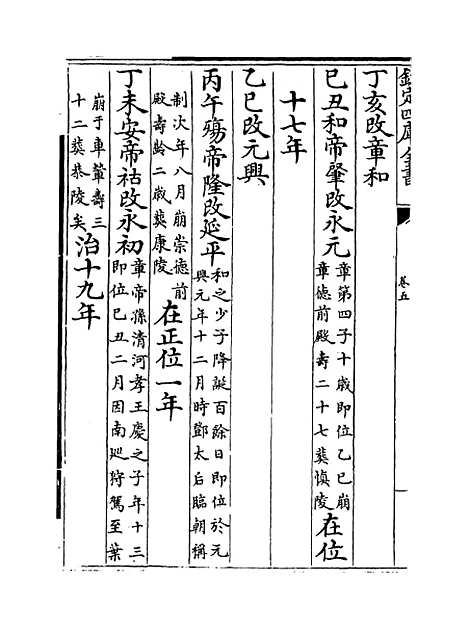 欽定四庫全書
卷五
丁亥改章和
己丑和帝肇改永元章第四子十歲即位乙巳崩章德前殿壽二十七葬慎陵在位
十七年
乙巳改元興
丙午殤帝隆改延平和之少子降誕百餘日即位於元興元年十二月時鄧太后臨朝稱
制次年八月崩崇德前殿壽齡二歲葬康陵在正位一年
丁未安帝祜改永初章帝孫清河孝王慶之子年十三即位己丑二月因南廵狩駕至葉
崩于車輦壽三十二葬恭陵矣治十九年